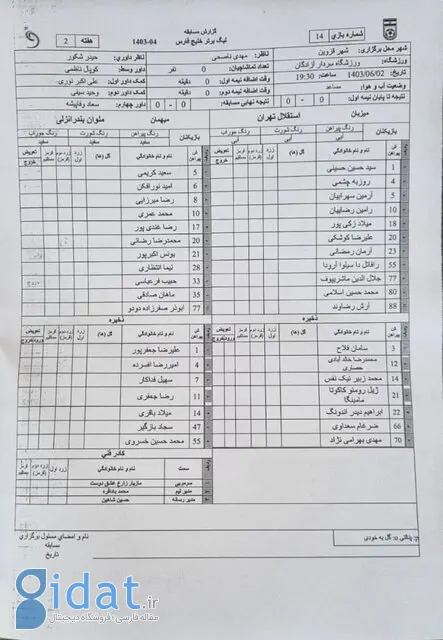 گزارش مسابقه
لیگ برتر خلیج فارس
1403-04
هفته 2
شماره بازی 14
شهر محل برگزاری: شهر قزوین
ورزشگاه: ورزشگاه سردار آزادگان
تاریخ: 1403/06/02 ساعت: 19:30
وضعیت آب و هوا: مساعد
نتیجه تا پایان نیمه اول: 0 - 0
ناظر: مهدی ناصحی
تعداد تماشاچیان: 0 نفر
وقت اضافه نیمه اول: 0 دقیقه
وقت اضافه نیمه دوم: 0 دقیقه
نتیجه نهایی مسابقه: 0 - 0
نظر داوری: حیدر شکور
داور وسط: کوپال ناظمی
کمک داور اول: علی اکبر نوری
کمک داور دوم: وحید سیفی
داور چهارم:
میزبان استقلال تهران
بازیکنان رنگ پیراهن رنگ شورت رنگ جوراب
آبی آبی آبی
نام و نام خانوادگی گل (ها)
1 سید حسین حسینی
4 روزبه چشمی
5 آرمین سهرابیان
10 رامین رضاییان
18 میلاد زکی پور
20 علیرضا کوشکی
23 آرمان رمضانی
55 رافائل دا سیلوا آرودا
77 جلال الدین ماشاریپوف
80 محمد حسین اسلامی
88 آرش رضاوند
ذخیره
نام و نام خانوادگی گل (ها)
3 سامان فلاح
12 محمدرضا خالد آبادی
14 محمد زبیر نیک نفس
21 ژیل رومئو کاکوتا مامبنگا
22 ابراهیم دیدر اندونگ
66 ضرغام سعداوی
70 مهدی بهرامی نژاد
میهمان ملوان بندرانزلی
بازیکنان رنگ پیراهن رنگ شورت رنگ جوراب
سفید سفید سفید
نام و نام خانوادگی گل (ها)
5 سعید کریمی
6 امید نورافکن
8 رضا میرزایی
10 محمد عمری
17 رضا غندی پور
20 محمدرضا رضائی
21 یونس اکبرپور
28 نیما انتظاری
33 حبیب فرعباسی
35 ماهان صادقی
77 ابوذر صفرزاده دودو
ذخیره
نام و نام خانوادگی گل (ها)
1 علیرضا جعفرپور
4 امیررضا افسرده
7 سهیل فداکار
11 رضا جعفری
14 میلاد باقری
47 سجاد بازگیر
55 محمد حسین خسروی
کادر فنی
سمت نام و نام خانوادگی
سرمربی مازیار زارع عشق دوست
سرپرست تیم
مدیر رسانه حسین شاهین
پ: پنالتی ه: گل به خودی
نام و امضای مسئول برگزاری مسابقه
تاریخ
gidat.ir
مقاله فارسی • فروشگاه دیجیتال